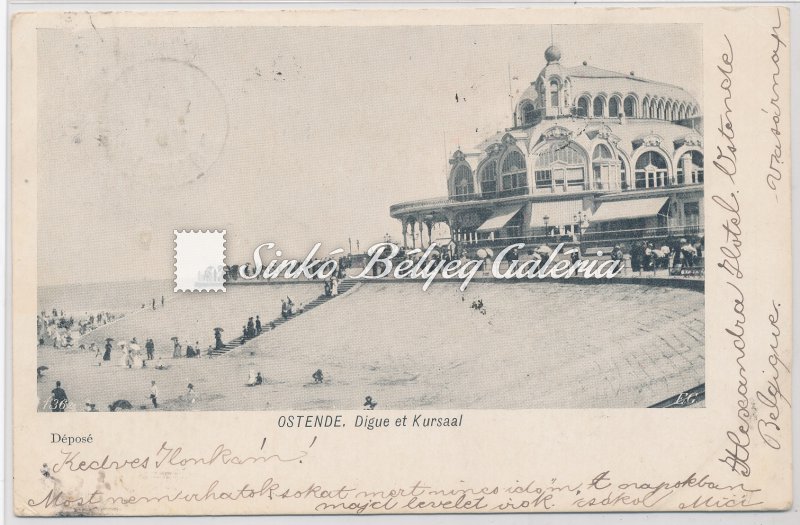 Sinkó Bélyeg Galéria
1362
E.G
OSTENDE. Digue et Kursaal
Déposé
Kedves Ilonkám!
Most nem írhatok sokat mert nincs időm. A napokban
majd levelet írok. csókol Mici
Alexandra Hotel. Ostende
Belgique. Vasárnap